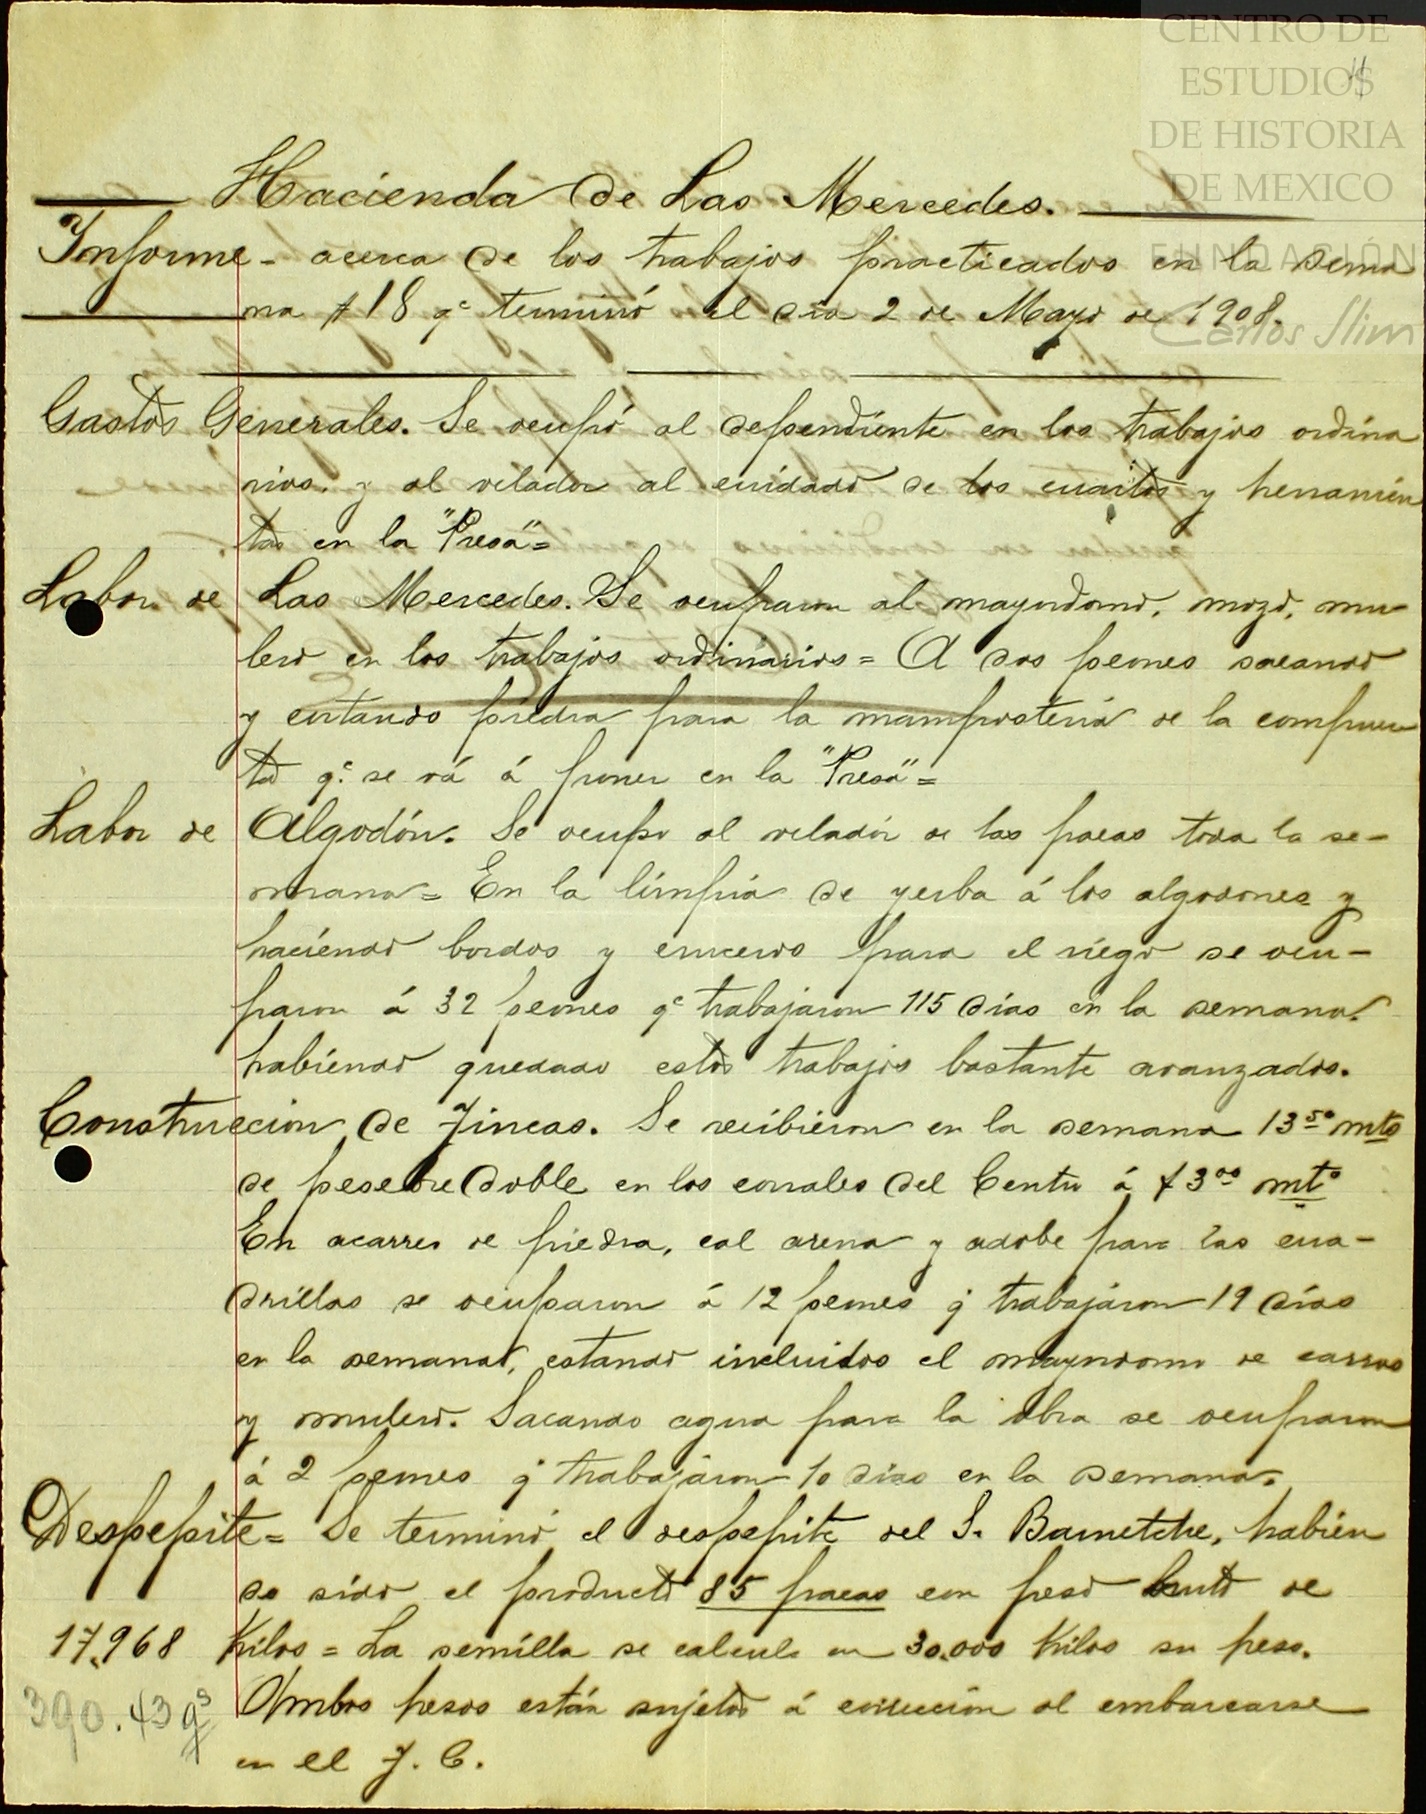 CENTRO DE
ESTUDIOS
DE HISTORIA
DE MEXICO
FUNDACIÓN
Carlos Slim
Hacienda de Las Mercedes.
Informe - acerca de los trabajos practicados en la sema
na # 18 qe terminó el dia 2 de Mayo de 1908.
Gastos Generales. Se ocupó al dependiente en los trabajos ordina
rios. y al velador al cuidado de los cuartos y herramien
tas en la "Presa" =
Labor de Las Mercedes. Se ocuparon al mayordomo, mozo, mu-
lero en los trabajos ordinarios = A dos peones sacando
y cortando piedra para la mampostería de la compuer
ta qe se vá á poner en la "Presa" =
Labor de Algodón. Se ocupo al velador de las pacas toda la se-
mana = En la limpia de yerba á los algodones y
haciendo bordos y cruceros para el riego se ocu-
paron á 32 peones qe trabajaron 115 dias en la semana.
habiendo quedado estos trabajos bastante avanzados.
Construccion de Fincas. Se recibieron en la semana 13 50 mts
de pesebre doble en los corrales del Centro á $ 3 00 mto
En acarreo de piedra, cal arena y adobe para las cua-
drillas se ocuparon á 12 peones q trabajáron 19 dias
en la semana, estando incluidos el mayordomo de carros
y mulero. Sacando agua para la obra se ocuparon
á 2 peones q trabajáron 10 dias en la semana.
Despepite = Se terminó el despepite del S. Barnetche, habien
do sido el producto 85 pacas con peso bruto de
17,968 Kilos = La semilla se calcula en 30.000 Kilos su peso.
390.43 qs Ambos pesos están sujetos á corrección al embarcarse
en el F. C.